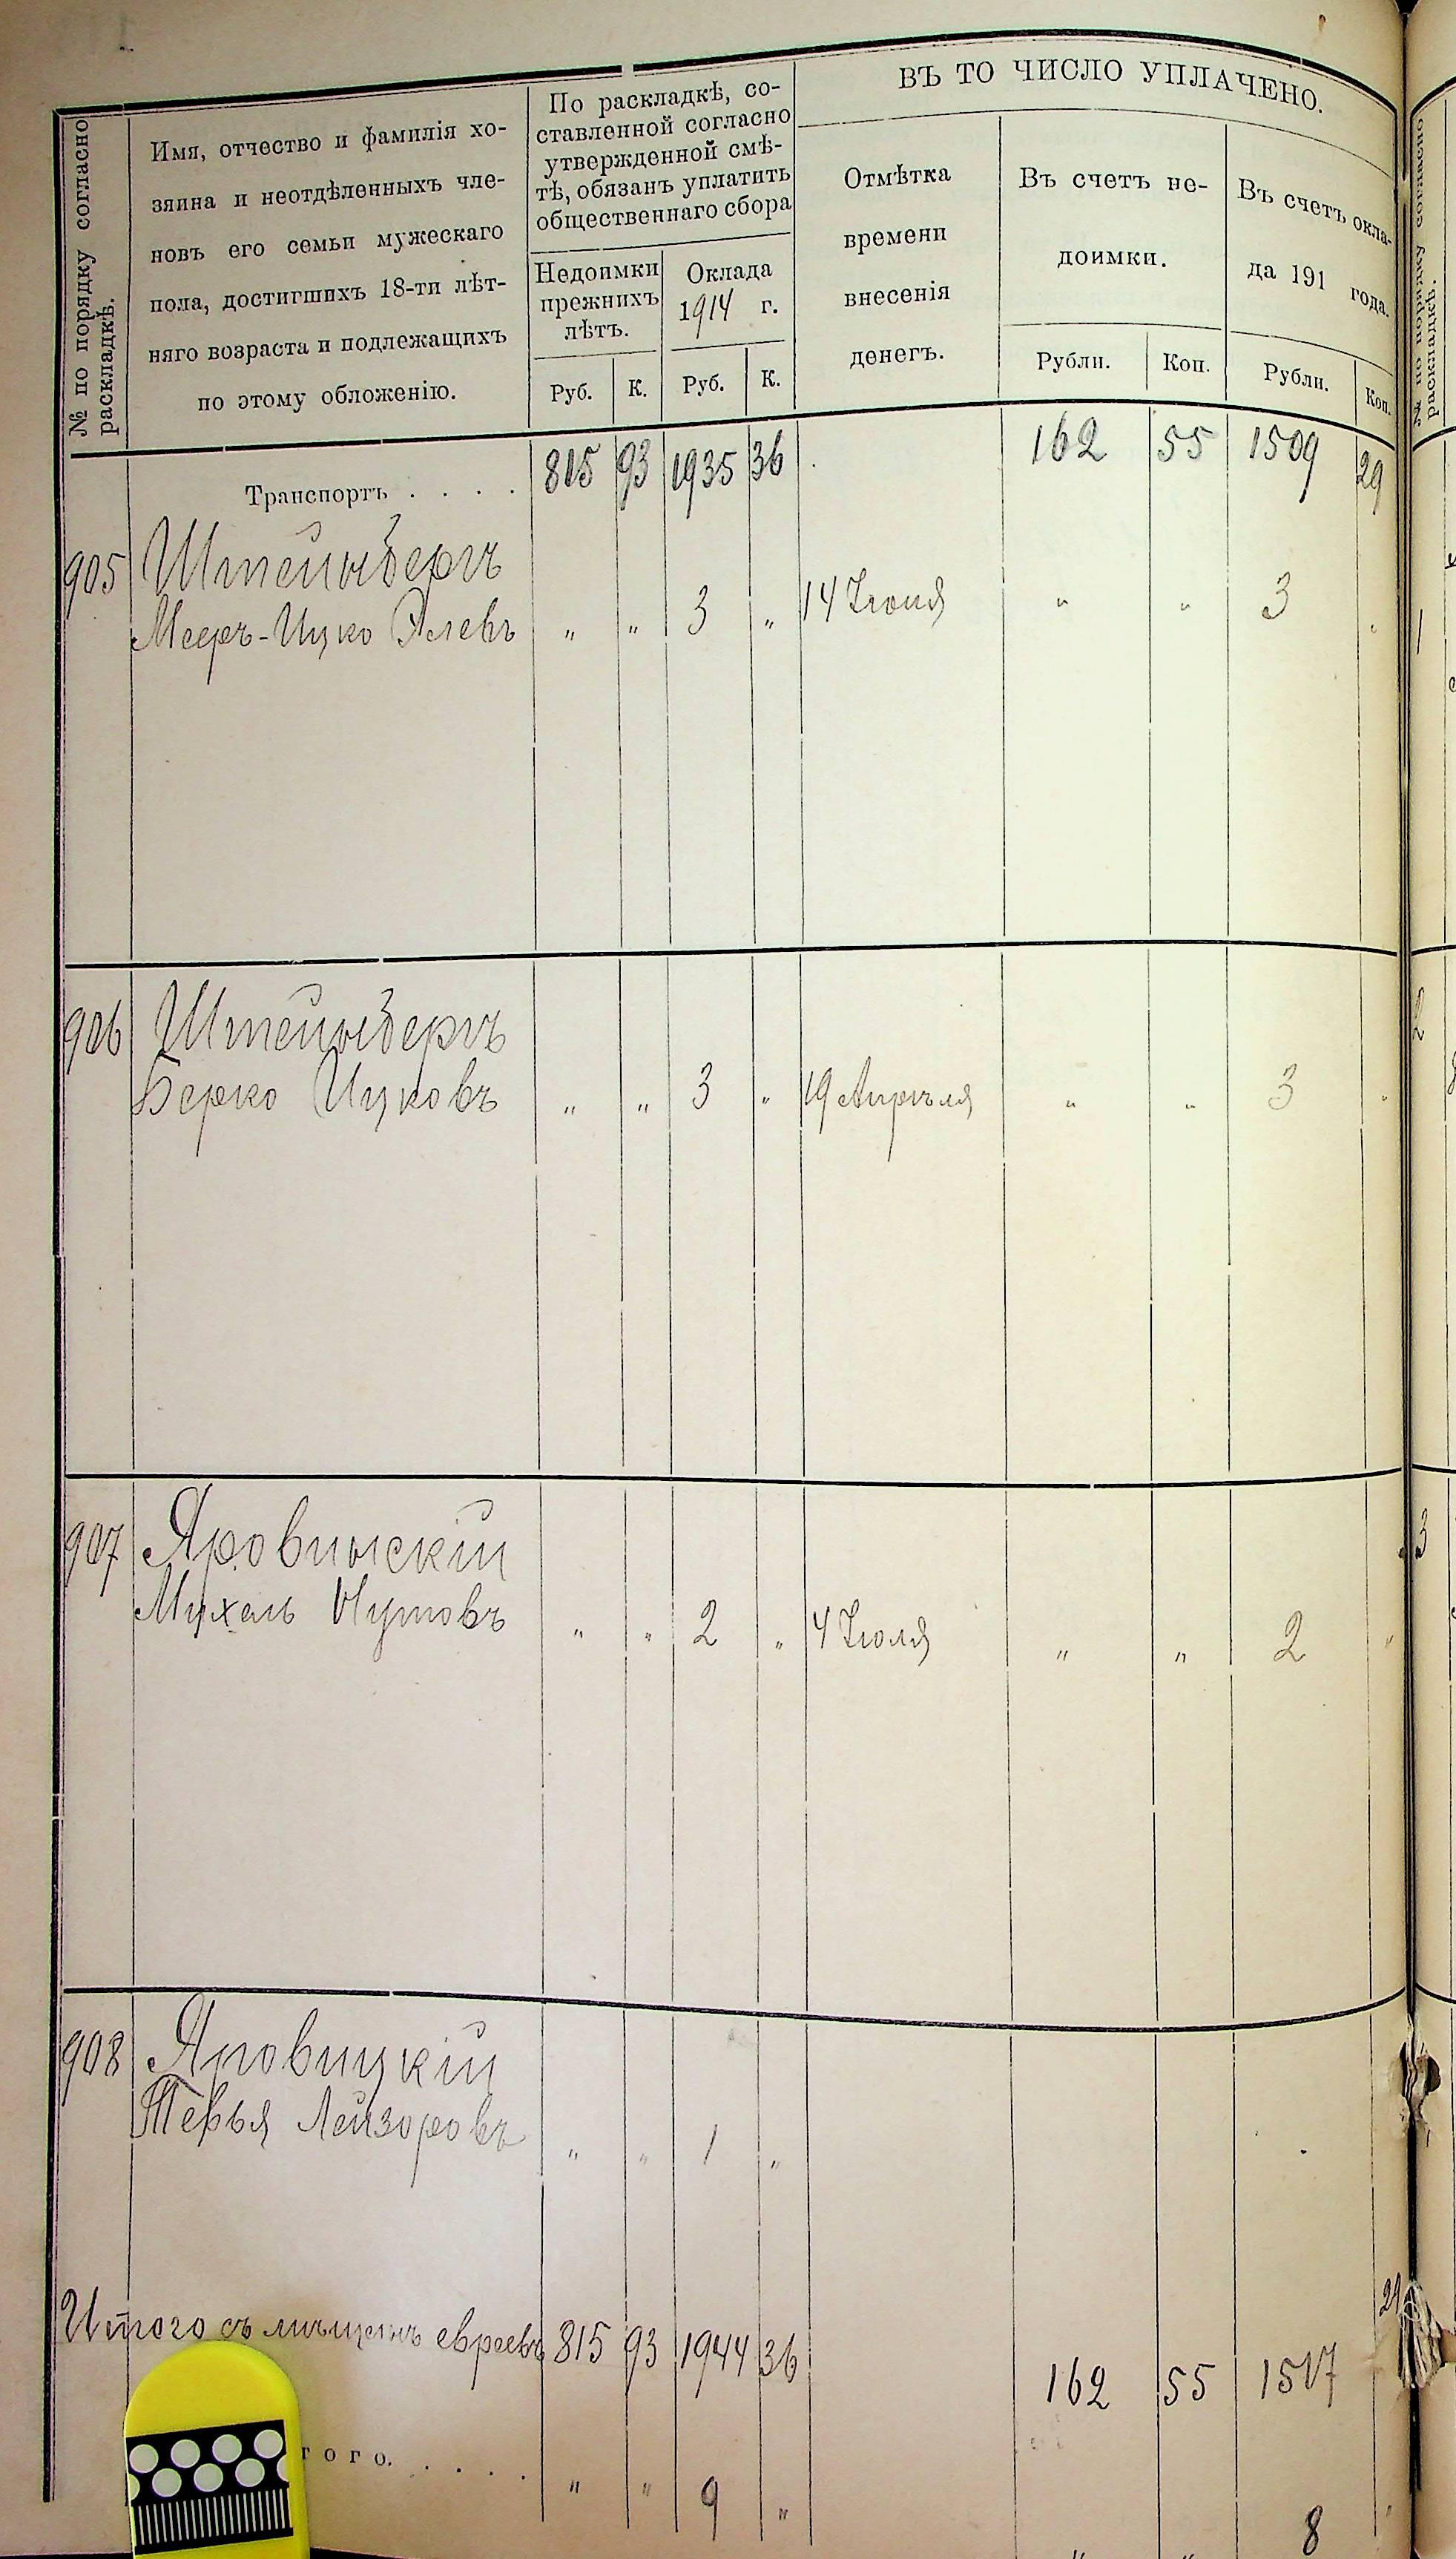 ВЪ ТО ЧИСЛО УПЛАЧЕНО.
№ по порядку согласно
раскладкѣ.
Имя, отчество и фамилія хо-
зяина и неотдѣленныхъ чле-
новъ его семьи мужескаго
пола, достигшихъ 18-ти лѣт-
няго возраста и подлежащихъ
по этому обложенію.
По раскладкѣ, со-
ставленной согласно
утвержденной смѣ-
тѣ, обязанъ уплатить
общественнаго сбора
Недоимки
прежнихъ
лѣтъ.
Оклада
1914 г.
Отмѣтка
времени
внесенія
денегъ.
Въ счетъ не-
доимки.
Въ счетъ окла-
да 191 года.
Руб. К. Руб. К. Рубли. Коп. Рубли. Коп.
Транспортъ . . . . 815 93 1935 36 162 55 1509 29
905 Штейнбергъ
Мееръ-Ицко Элевъ „ „ 3 „ 14 Іюня „ „ 3 „
906 Штейнбергъ
Берко Ицковъ „ „ 3 „ 19 Апрѣля „ „ 3 „
907 Яровинскій
Михель Нутовъ „ „ 2 „ 4 Іюля „ „ 2 „
908 Яновицкій
Тевья Лейзоровъ „ „ 1 „
Итого съ мѣщанъ евреевъ 815 93 1944 36 162 55 1517 29
того. . . . . „ „ 9 „ „ „ 8 „